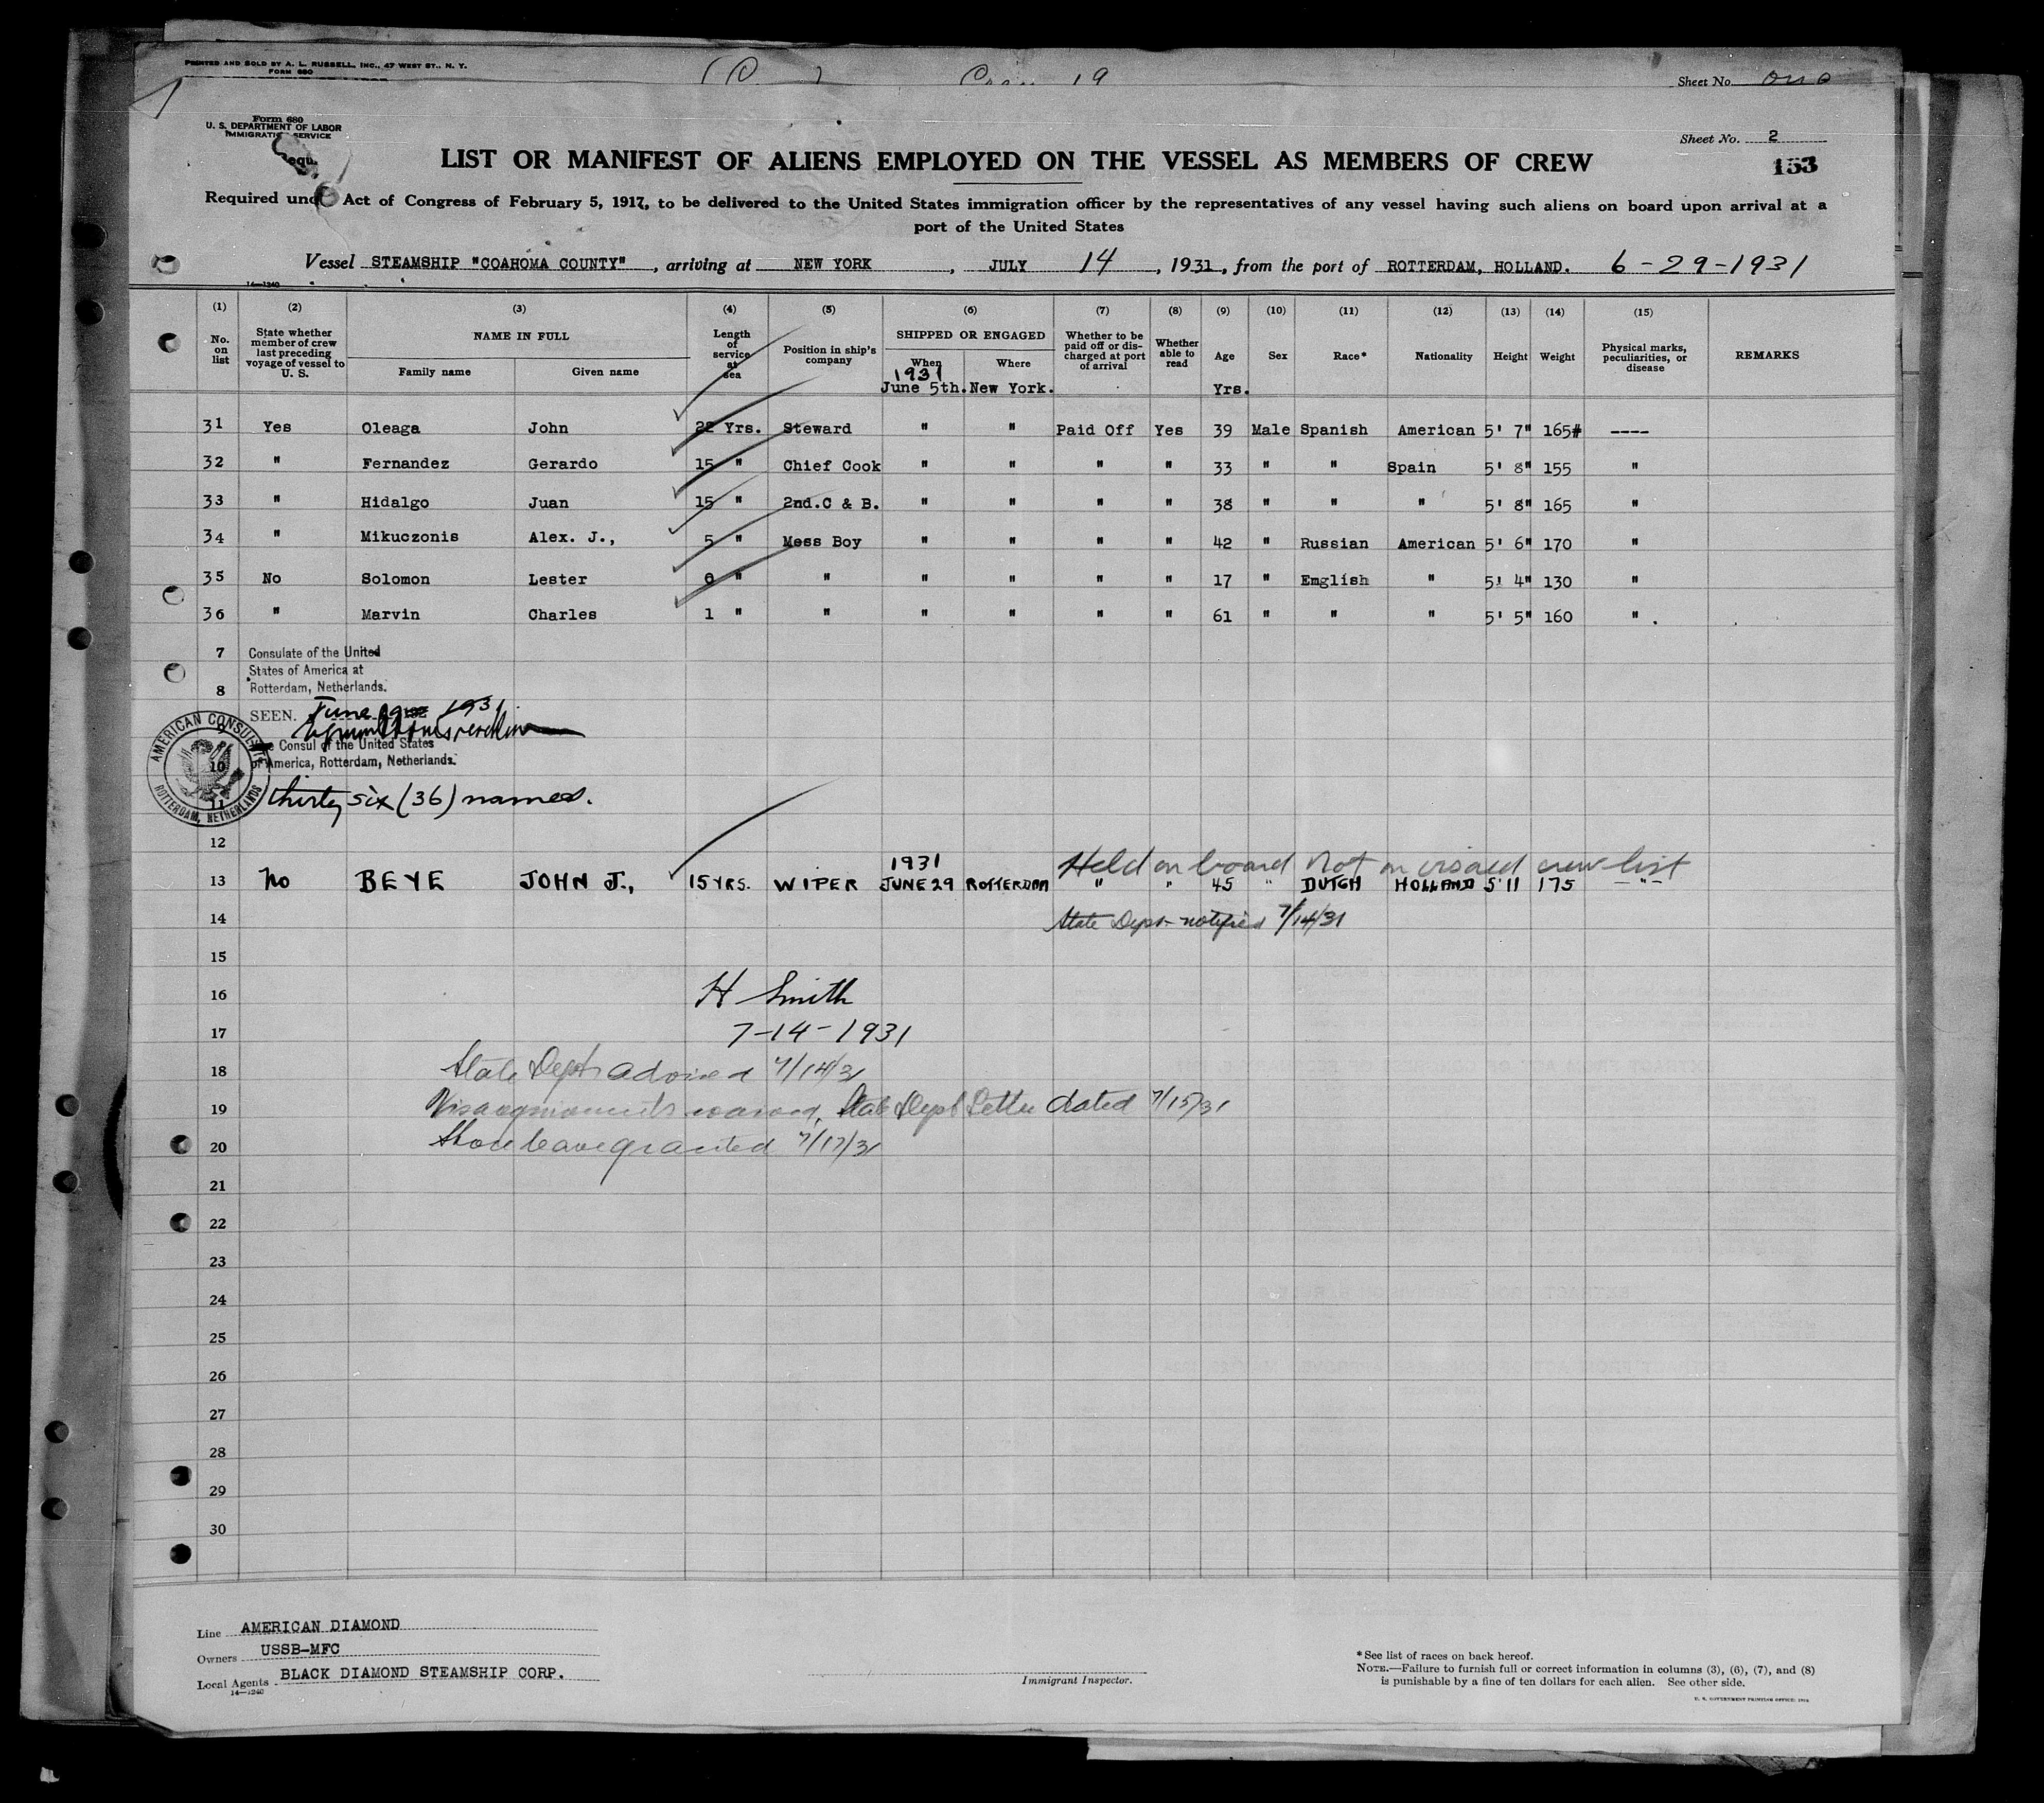 PRINTED AND SOLD BY A. L. RUSSELL, INC., 47 WEST ST., N. Y.
FORM 680
19
Sheet No. one
Form 680
U. S. DEPARTMENT OF LABOR
IMMIGRATION SERVICE
Sheet No. 2
LIST OR MANIFEST OF ALIENS EMPLOYED ON THE VESSEL AS MEMBERS OF CREW
153
Required under Act of Congress of February 5, 1917, to be delivered to the United States immigration officer by the representatives of any vessel having such aliens on board upon arrival at a
port of the United States
Vessel STEAMSHIP "COAHOMA COUNTY", arriving at NEW YORK, JULY 14, 1931, from the port of ROTTERDAM, HOLLAND. 6-29-1931
14—1240
(1) (2) (3) (4) (5) (6) (7) (8) (9) (10) (11) (12) (13) (14) (15)
No. on list State whether member of crew last preceding voyage of vessel to U. S. NAME IN FULL Family name Given name Length of service at sea Position in ship's company SHIPPED OR ENGAGED When Where Whether to be paid off or discharged at port of arrival Whether able to read Age Sex Race* Nationality Height Weight Physical marks, peculiarities, or disease REMARKS
1931
June 5th. New York. Yrs.
31 Yes Oleaga John 22 Yrs. Steward " " Paid Off Yes 39 Male Spanish American 5' 7" 165# ----
32 " Fernandez Gerardo 15 " Chief Cook " " " " 33 " " Spain 5' 8" 155 "
33 " Hidalgo Juan 15 " 2nd.C & B. " " " " 38 " " " 5' 8" 165 "
34 " Mikuczonis Alex. J., 5 " Mess Boy " " " " 42 " Russian American 5' 6" 170 "
35 No Solomon Lester 0 " " " " " " 17 " Emglish " 5' 4" 130 "
36 " Marvin Charles 1 " " " " " " 61 " " " 5' 5" 160 "
7 Consulate of the United
States of America at
8 Rotterdam, Netherlands.
SEEN. June 1931
9
Consul of the United States
10 of America, Rotterdam, Netherlands.
AMERICAN CONSULATE ROTTERDAM, NETHERLANDS
11 thirty six (36) names.
12
1931 Held on board Not on visaed crew list
13 No BEYE JOHN J., 15 YRS. WIPER JUNE 29 ROTTERDAM " " 45 " DUTCH HOLLAND 5'11 175 -"-
14 State Dept. notified 7/14/31
15
16 H Smith
17 7-14-1931
18 State Dept. advised 7/14/31
19 Visa requirements waived, State Dept Letter dated 7/15/31
20 Shore leave granted 7/17/31
21
22
23
24
25
26
27
28
29
30
Line AMERICAN DIAMOND
Owners USSB-MFC
Local Agents BLACK DIAMOND STEAMSHIP CORP.
14—1240
Immigrant Inspector.
*See list of races on back hereof.
NOTE.—Failure to furnish full or correct information in columns (3), (6), (7), and (8)
is punishable by a fine of ten dollars for each alien. See other side.